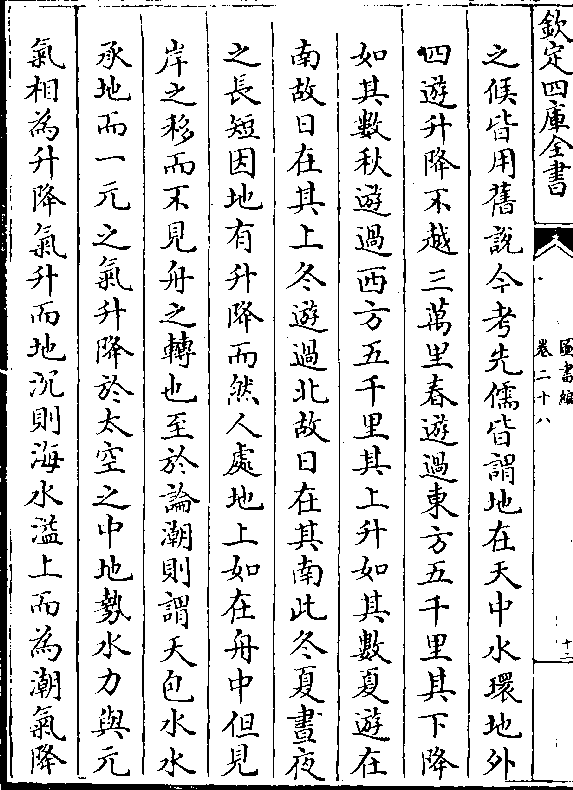 欽定四庫全書
圖書編
卷二十八
十二
之候皆用舊説今考先儒皆謂地在天中水環地外
四遊升降不越三萬里春遊過東方五千里其下降
如其數秋遊過西方五千里其上升如其數夏遊在
南故日在其上冬遊過北故日在其南此冬夏晝夜
之長短因地有升降而然人處地上如在舟中但見
岸之移而不見舟之轉也至於論潮則謂天包水水
承地而一元之氣升降於太空之中地勢水力與元
氣相為升降氣升而地沉則海水溢上而為潮氣降